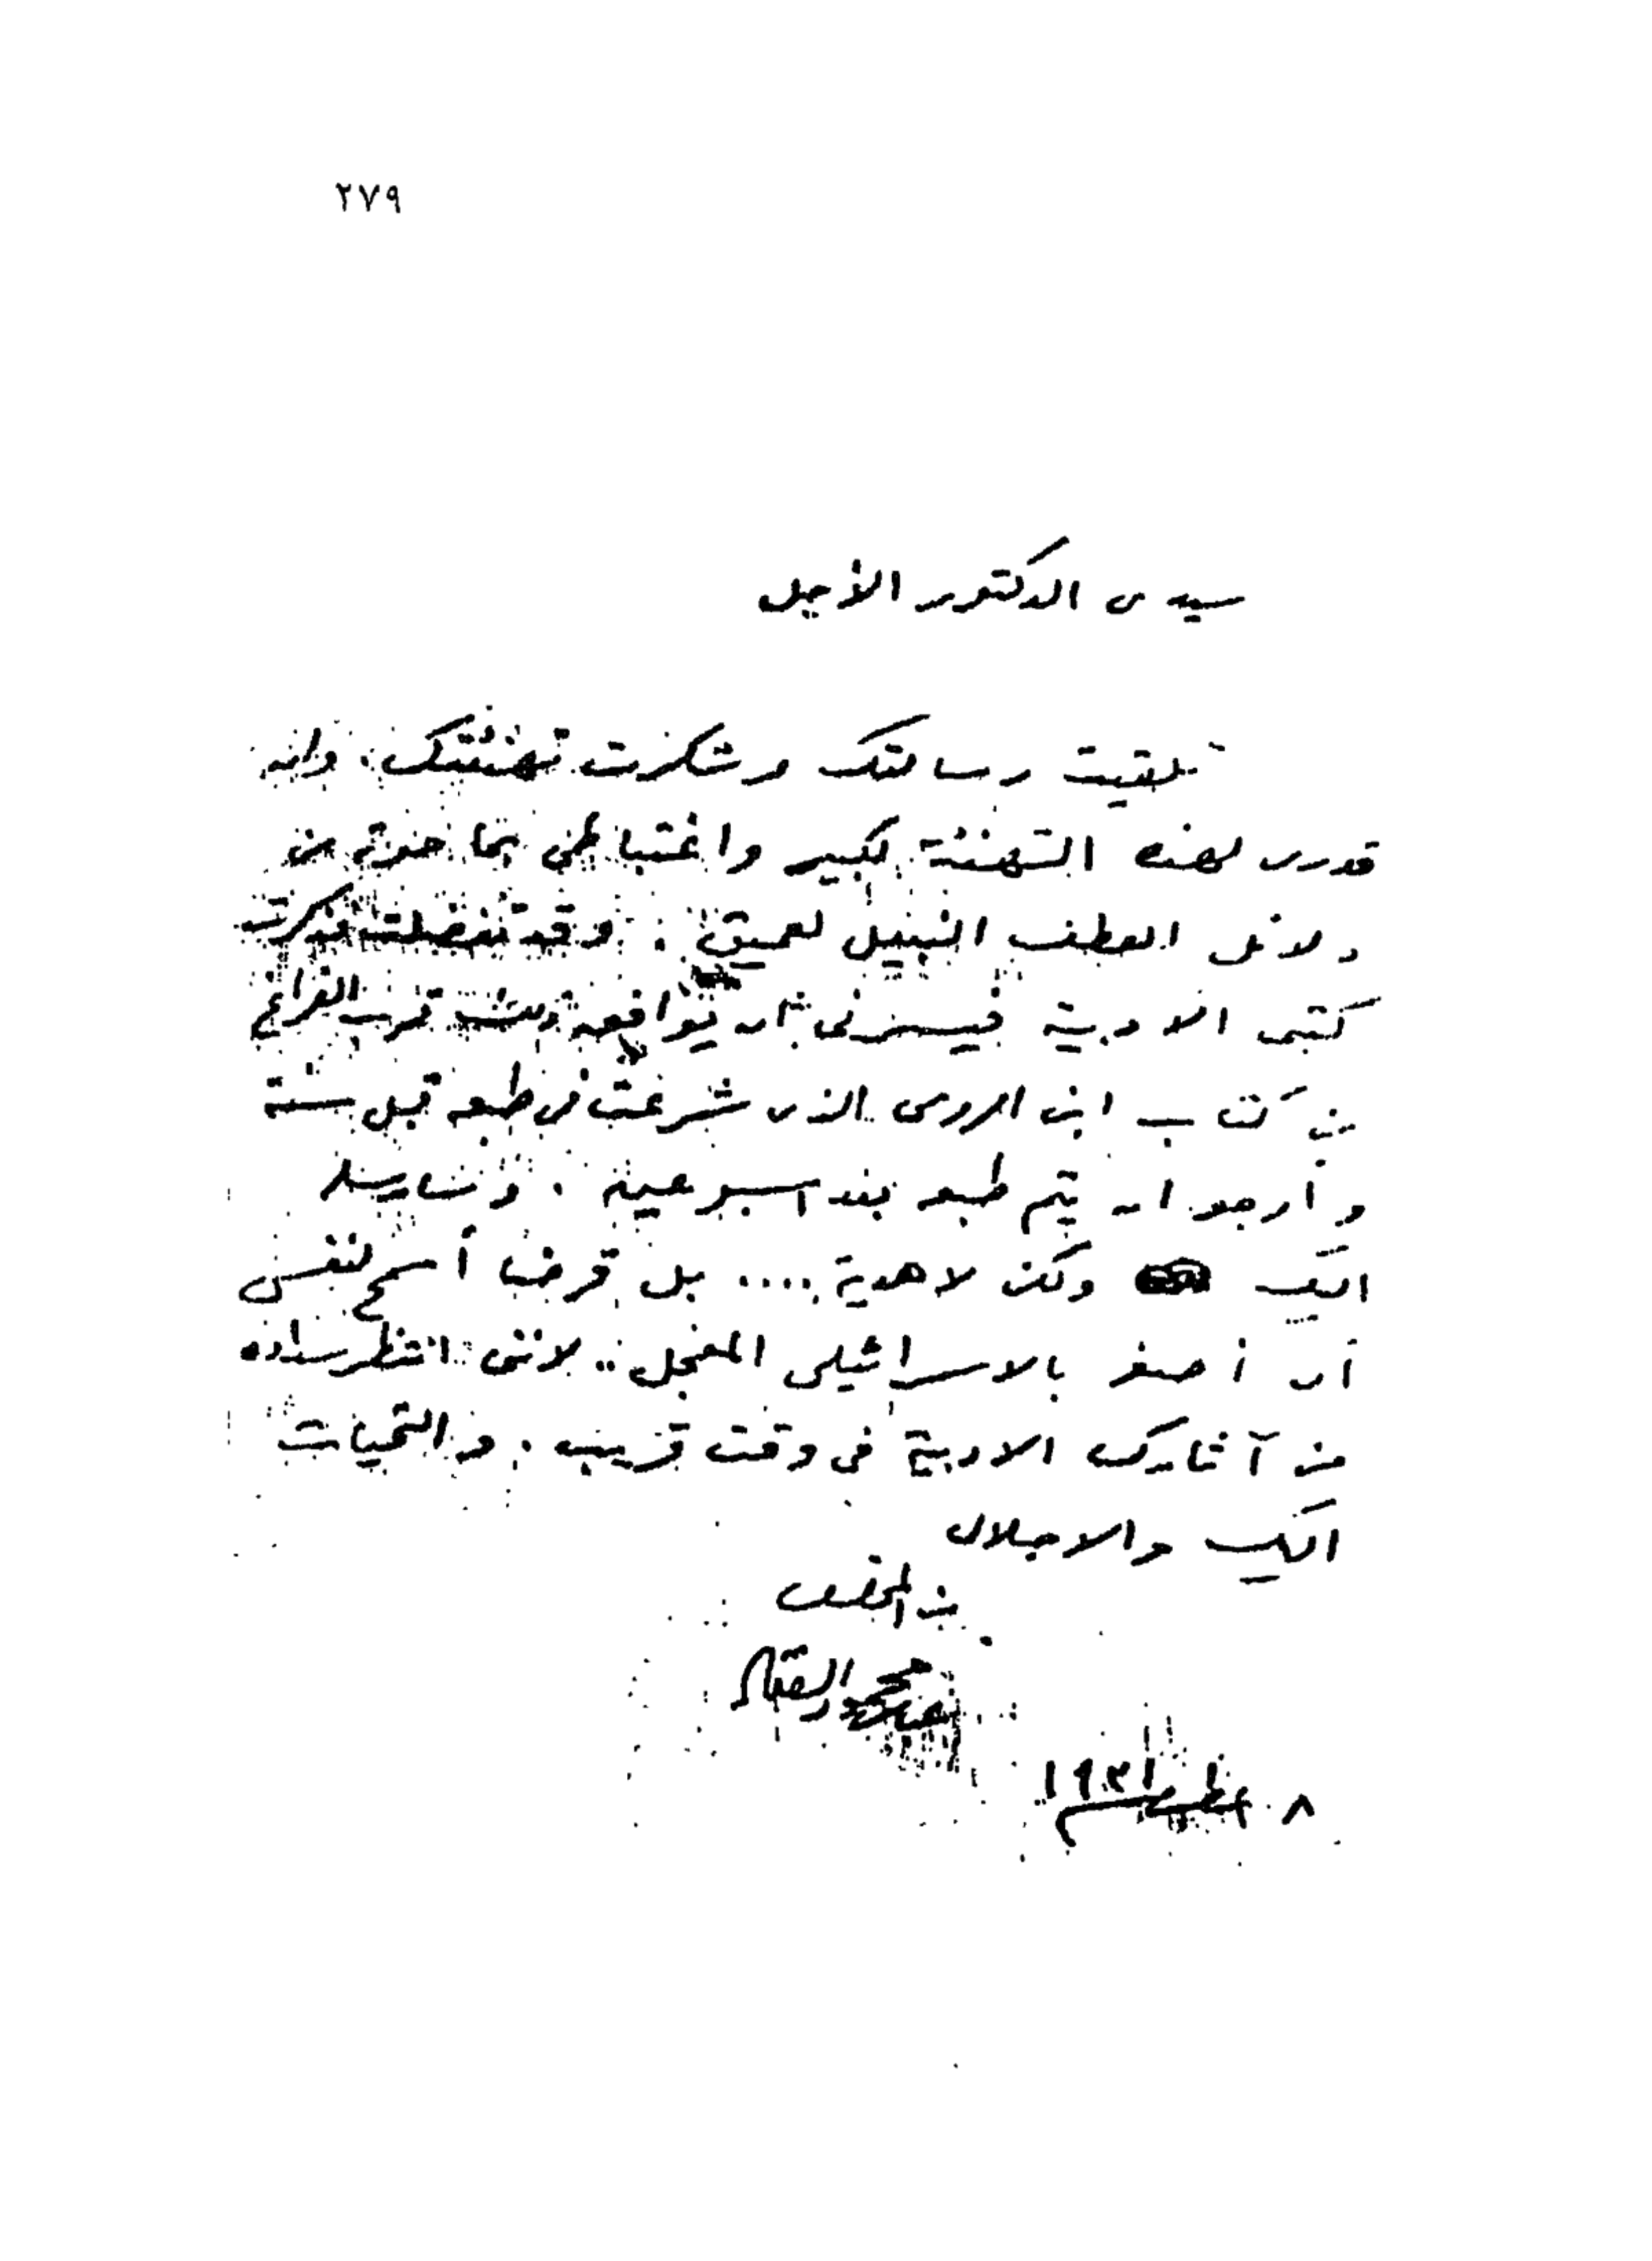 ٢٧٩
سيدى الدكتور الأجل
تلقيت رسالتك وشكرت تهنئتك . وانه
قدرى لهذه التهنئة لكبير واغتباطى بما حوته من
دلائل العطف النبيل لعميق . وقد تفضلت فذكرت
كتبى الادبية فيسرنى ان يوافق ذلك قرب الفراغ
من كتاب ابن الرومى الذى شرعت فى طبعه قبل سنة
وأرجو ان يتم طبعه بعد اسبوعين . وسأرسله
اليك ولكن لا هدية .... بل قرضا أسمح لنفسى
أن أصفه بالاسرائيلى المعجل .. لاننى انتظر سداده
من آثارك الادبية فى وقت قريب . والتحيات
اليك والاجلال
من المخلص
عباس محمود العقاد
٨ اغسطس ١٩٣١